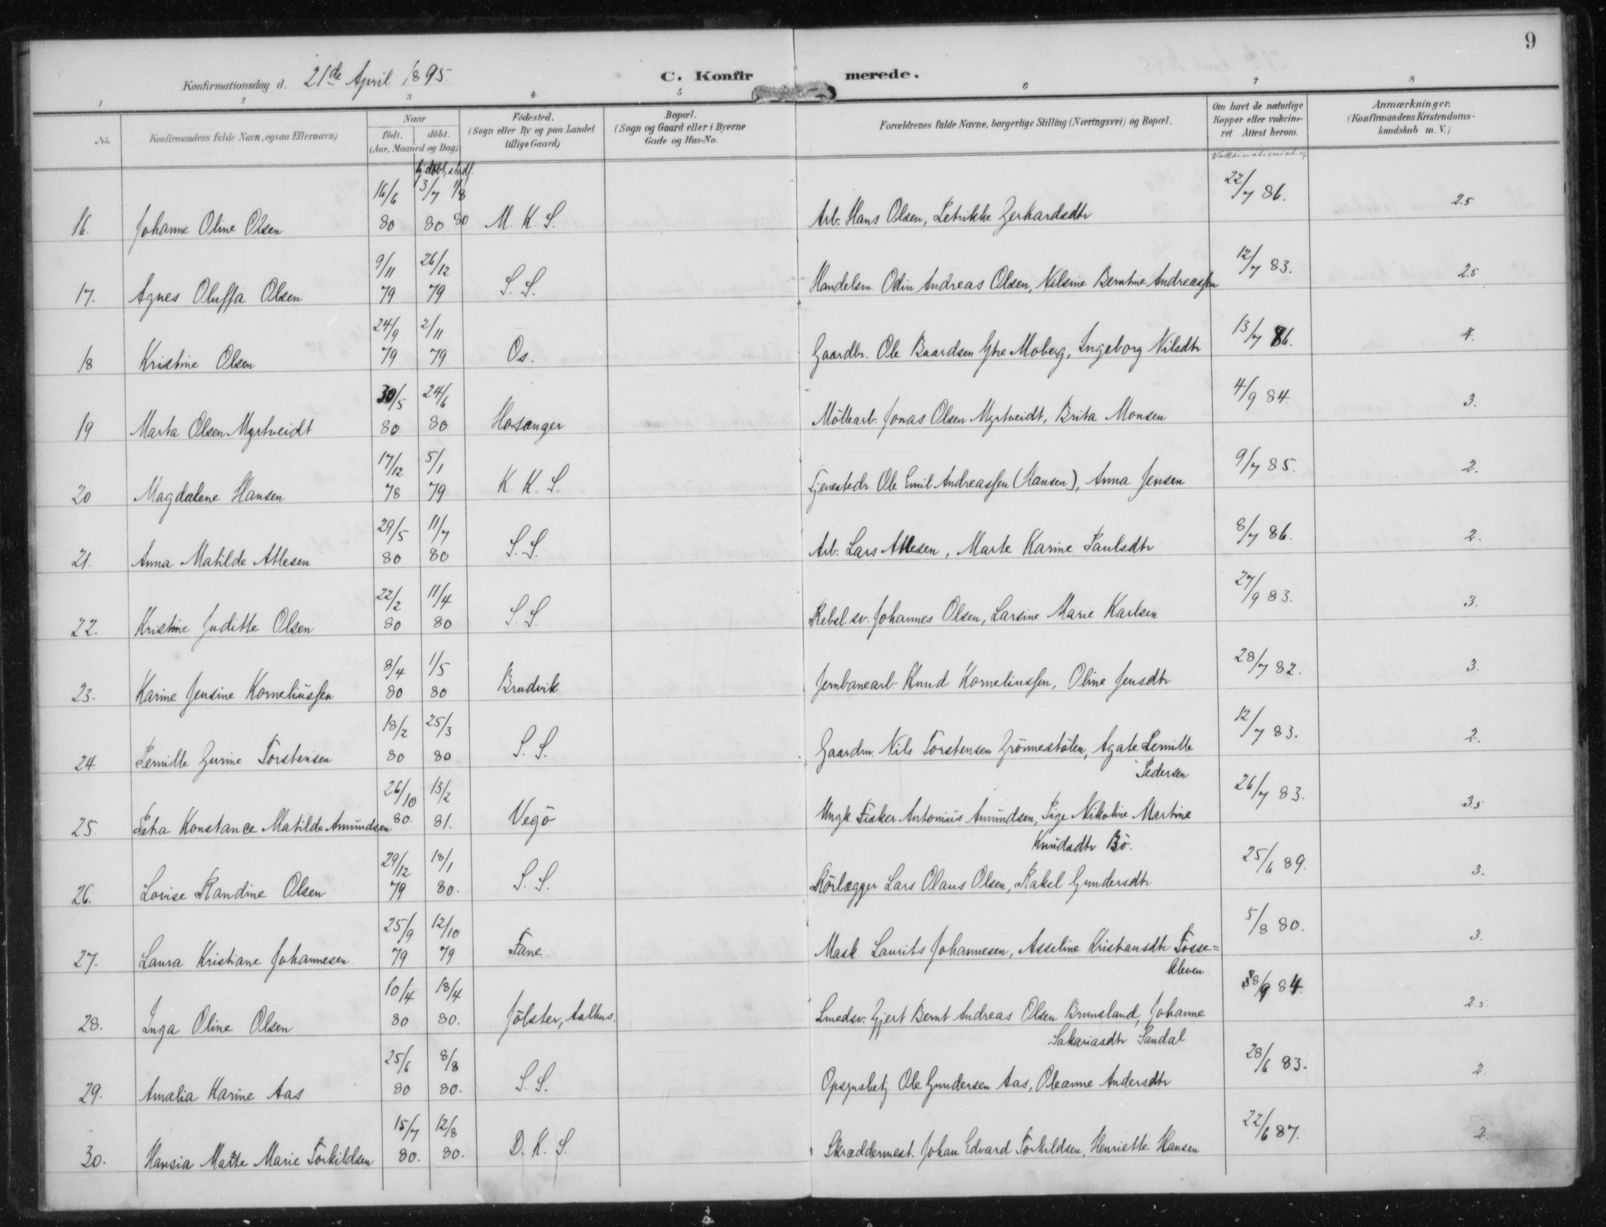 9
Konfirmationsdag d. 21de April 1895.
C. Konfirmerede.
1 2 3 4 5 6 7 8
No. Konfirmandens fulde Navn, ogsaa Efternavn) Naar født. døbt. (Aar, Maaned og Dag) Fødested. (Sogn eller By og paa Landet tillige Gaard) Bopæl. (Sogn og Gaard eller i Byerne Gade og Hus-No. Forældrenes fulde Navne, borgerlige Stilling (Næringsvei) og Bopæl. Om havt de naturlige Kopper eller vakcineret Attest herom. Anmærkninger. (Konfirmandens Kristendomskundskab m. V.)
hj.døbt, stadf.
16. Johanne Oline Olsen 16/6 80 3/7 80 1/8 80 M. K. S. Arb. Hans Olsen, Petrikke Gerhardsdtr 22/7 86. 2.5
17. Agnes Oluffa Olsen 9/11 79 26/12 79 S. S. Handelsm. Odin Andreas Olsen, Nilsine Berntine Andreassen 12/7 83. 2.5
18 Kristine Olsen 24/9 79 2/11 79 Os. Gaardbr. Ole Baardsen Ytre Moberg, Ingeborg Nilsdtr 13/7 86. 4.
19 Marta Olsen Myrtveidt 30/5 80 24/6 80 Hosanger Møllearb. Jonas Olsen Myrtveidt, Brita Monsen 4/9 84. 3.
20 Magdalene Hansen 17/12 78 5/1 79 K K. S. Tjenestedr. Ole Emil Andreassen (Hansen), Anna Jensen 9/7 85. 2.
21. Anna Matilde Atlesen 29/5 80 11/7 80 S. S. Arb. Lars Atlesen, Marte Karine Paulsdtr 8/7 86. 2.
22. Kristine Juditte Olsen 22/2 80 11/4 80 S. S. Rebsl.sv. Johannes Olsen, Larsine Marie Karlsen 27/9 83. 3.
23. Karine Jensine Korneliussen 8/4 80 1/5 80 Brudvik Jernbanearb. Knud Korneliussen, Oline Jensdtr 28/7 82. 3.
24 Pernille Gurine Torstensen 18/2 80 25/3 80 S. S. Gaardm. Nils Torstensen Grönnestölen, Agate Pernille Pedersen 12/7 83. 2.
25 Petra Konstance Matilde Amundsen 26/10 80. 13/2 81. Vegö Ungk. Fisker Antonius Amundsen, Pige Nikoline Martine Knudsdtr Bö. 26/7 83. 3.5
26. Lovise Randine Olsen 29/12 79 18/1 80. S. S. Rörlægger Lars Olaus Olsen, Rakel Gundersdtr 25/6 89. 3.
27. Laura Kristiane Johannesen 25/9 79 12/10 79 Fane Mask. Laurits Johannesen, Asseline Kristiansdtr Fosse=kleven 5/8 80. 3.
28. Inga Oline Olsen 10/4 80 18/4 80. Jölster, Aalhus. Smedsv. Gjert Bernt Andreas Olsen Brunsland, Johanne Sakariasdtr Sandal 8/9 84. 2.5
29. Amalia Karine Aas 25/6 80 8/8 80. S. S. Opsynsbetj Ole Gundersen Aas, Oleanne Andersdtr 28/6 83. 2.
30. Hansia Marte Marie Torkildsen 15/7 80. 12/8 80. D. K. S. Skræddermest. Johan Edvard Torkildsen, Henriette Hansen 22/6 87. 2.